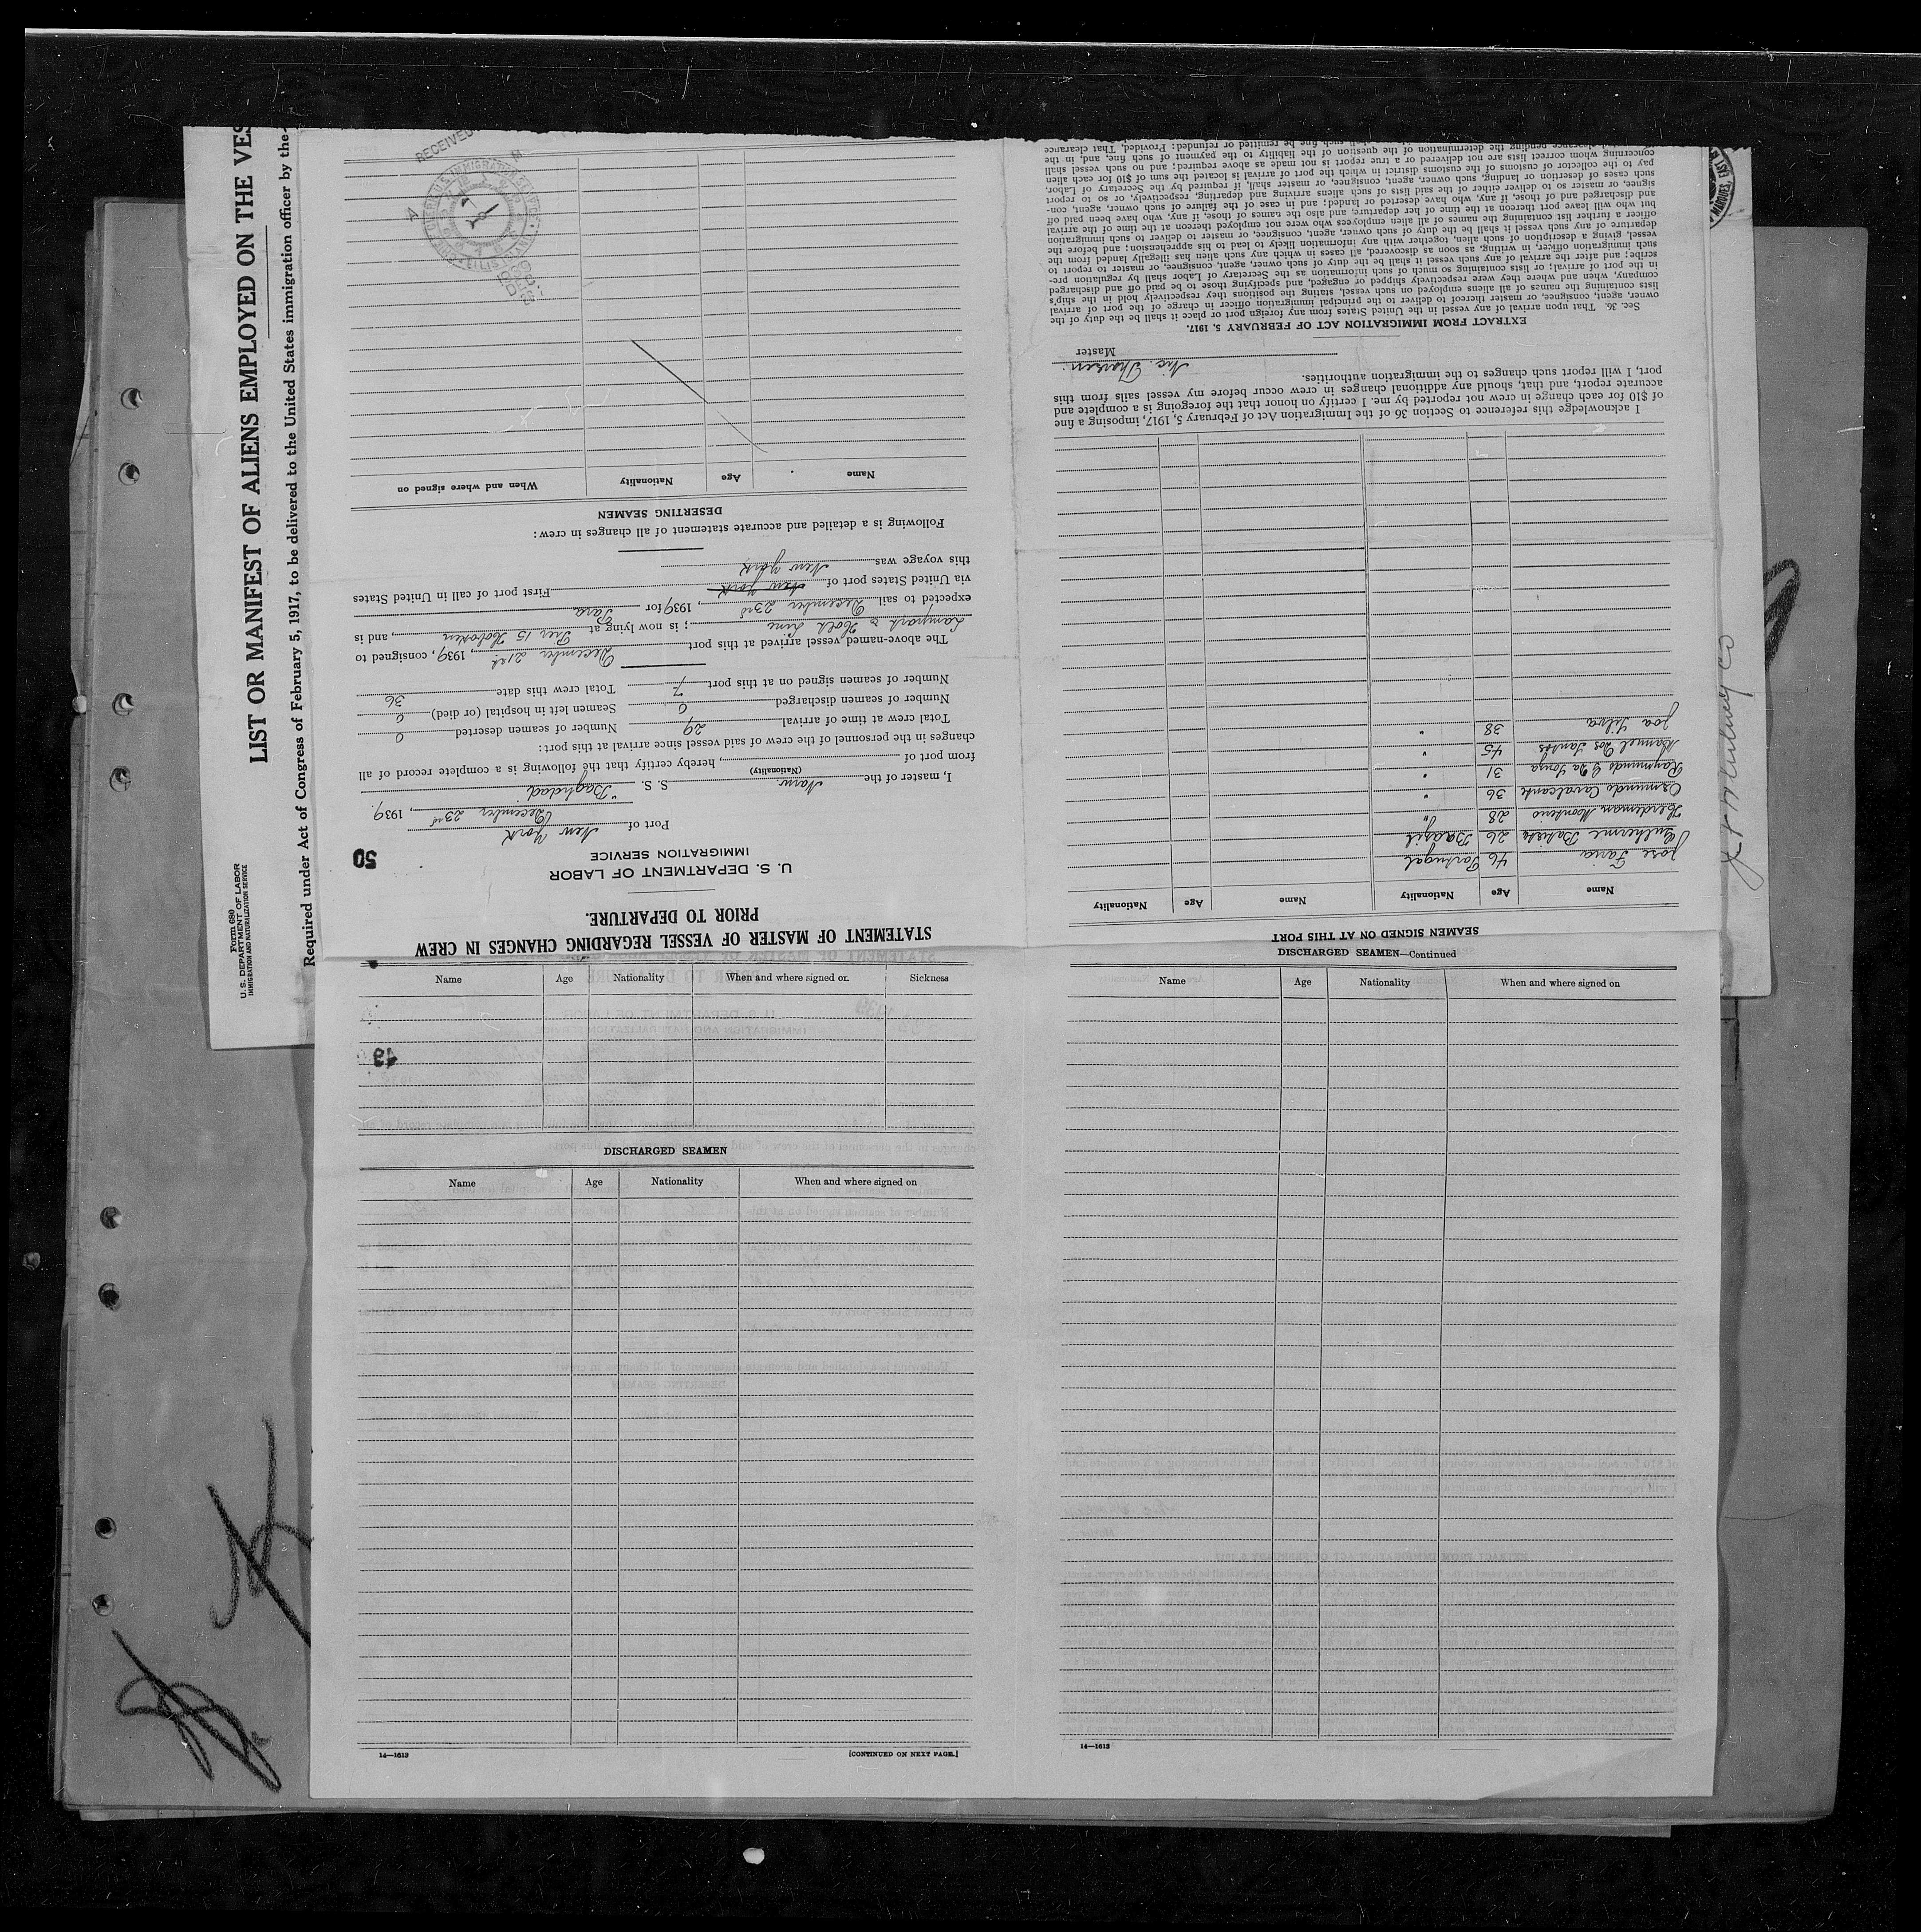 LIST OR MANIFEST OF ALIENS EMPLOYED ON THE VES
Required under Act of Congress of February 5, 1917, to be delivered to the United States immigration officer by the
Form 680
U. S. DEPARTMENT OF LABOR
IMMIGRATION AND NATURALIZATION SERVICE
STATEMENT OF MASTER OF VESSEL REGARDING CHANGES IN CREW
PRIOR TO DEPARTURE.
U. S. DEPARTMENT OF LABOR
IMMIGRATION SERVICE
50
Port of New York
December 23rd, 1939.
I, master of the Norw S. S. "Baghdad
(Nationality)
from port of , hereby certify that the following is a complete record of all
changes in the personnel of the crew of said vessel since arrival at this port:
Total crew at time of arrival 29 Number of seamen deserted 0
Number of seamen discharged 0 Seamen left in hospital (or died) 0
Number of seamen signed on at this port 7 Total crew this date 36
The above-named vessel arrived at this port December 21st, 1939, consigned to
Lamport & Holt Line; is now lying at Pier 15 Hoboken, and is
expected to sail December 23rd, 1939, for Para
via United States port of New York First port of call in United States
this voyage was New York
Following is a detailed and accurate statement of all changes in crew:
DESERTING SEAMEN
Name Age Nationality When and where signed on
RECEIVED
U.S. IMMIGRATION SERVICE
SEAMEN SIGNED ON AT THIS PORT
Name Age Nationality Name Age Nationality
Jose Faria 46 Portugal
Guilherme Batista 26 Brazil
Herdeman Monteiro 28 "
Osmundo Cavalcante 36 "
Raymundo G Da Souza 31 "
Manuel Dos Santos 45 "
Joa Silva 38 "
I acknowledge this reference to Section 36 of the Immigration Act of February 5, 1917, imposing a fine
of $10 for each change in crew not reported by me. I certify on honor that the foregoing is a complete and
accurate report, and that, should any additional changes in crew occur before my vessel sails from this
port, I will report such changes to the immigration authorities.
Nic. Thorsen.
Master
EXTRACT FROM IMMIGRATION ACT OF FEBRUARY 5, 1917.
Sec. 36. That upon arrival of any vessel in the United States from any foreign port or place it shall be the duty of the
owner, agent, consignee, or master thereof to deliver to the principal immigration officer in charge of the port of arrival
lists containing the names of all aliens employed on such vessel, stating the positions they respectively hold in the ship's
company, when and where they were respectively shipped or engaged, and specifying those to be paid off and discharged
in the port of arrival; or lists containing so much of such information as the Secretary of Labor shall by regulation pre-
scribe; and after the arrival of any such vessel it shall be the duty of such owner, agent, consignee, or master to report to
such immigration officer, in writing, as soon as discovered, all cases in which any such alien has illegally landed from the
vessel, giving a description of such alien, together with any information likely to lead to his apprehension; and before the
departure of any such vessel it shall be the duty of such owner, agent, consignee, or master to deliver to such immigration
officer a further list containing the names of all alien employees who were not employed thereon at the time of the arrival
but who will leave port thereon at the time of her departure, and also the names of those, if any, who have been paid off
and discharged and of those, if any, who have deserted or landed; and in case of the failure of such owner, agent, con-
signee, or master so to deliver either of the said lists of such aliens arriving and departing, respectively, or so to report
such cases of desertion or landing, such owner, agent, consignee, or master shall, if required by the Secretary of Labor,
pay to the collector of customs of the customs district in which the port of arrival is located the sum of $10 for each alien
concerning whom correct lists are not delivered or a true report is not made as above required; and no such vessel shall
clearance pending the determination of the question of the liability to the payment of such fine, and, in the
such fine be remitted or refunded: Provided, That clearance
MARQUES, EAST
Name Age Nationality When and where signed on Sickness
49
DISCHARGED SEAMEN
Name Age Nationality When and where signed on
14—1613
[CONTINUED ON NEXT PAGE.]
DISCHARGED SEAMEN—Continued
Name Age Nationality When and where signed on
14—1613